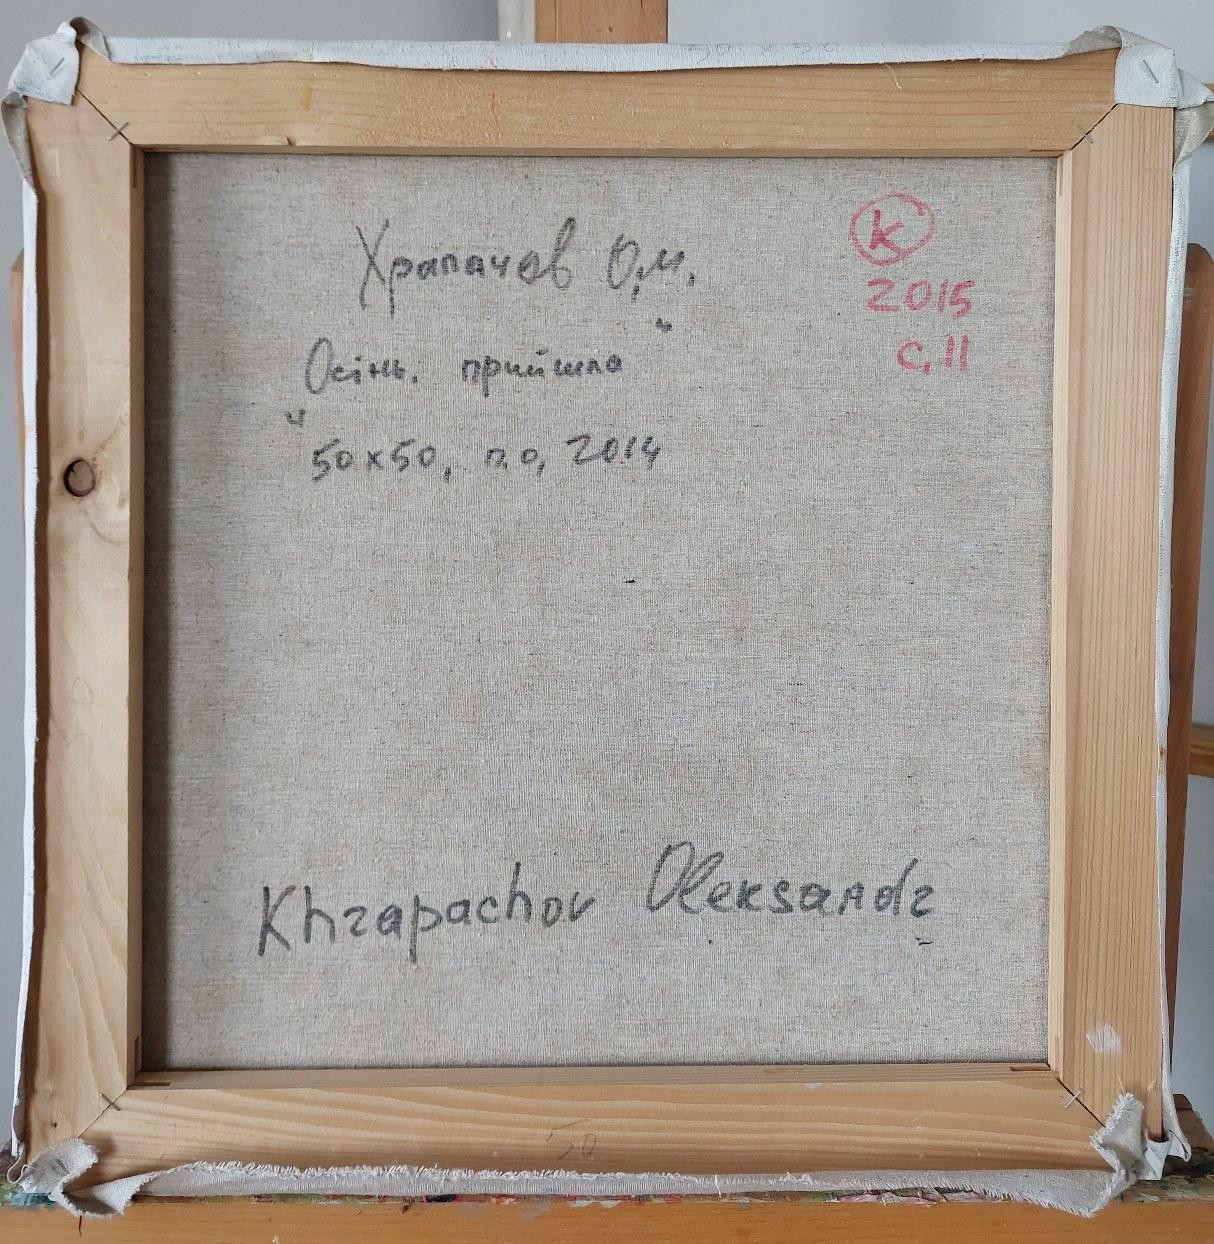 Храпачов О.М.
K
2015
С, 11
"Осінь. прийшла"
50x50, п.о, 2014
Khrapachov Oleksandr
50